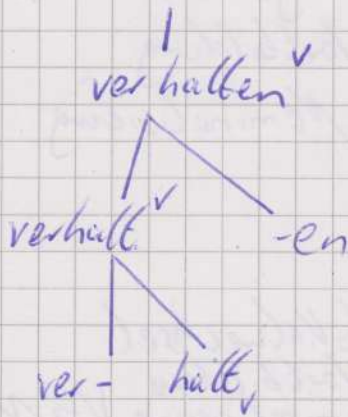 verhalten v
verhalt v
-en
ver-
halt v